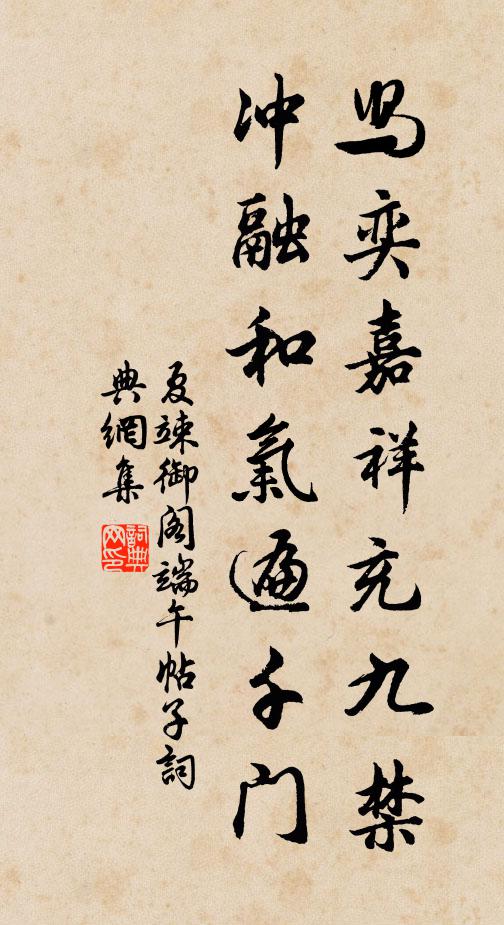 舄奕嘉祥充九禁
冲融和氣遍千门
夏竦御阁端午帖子詞
典網集
詞典
网印